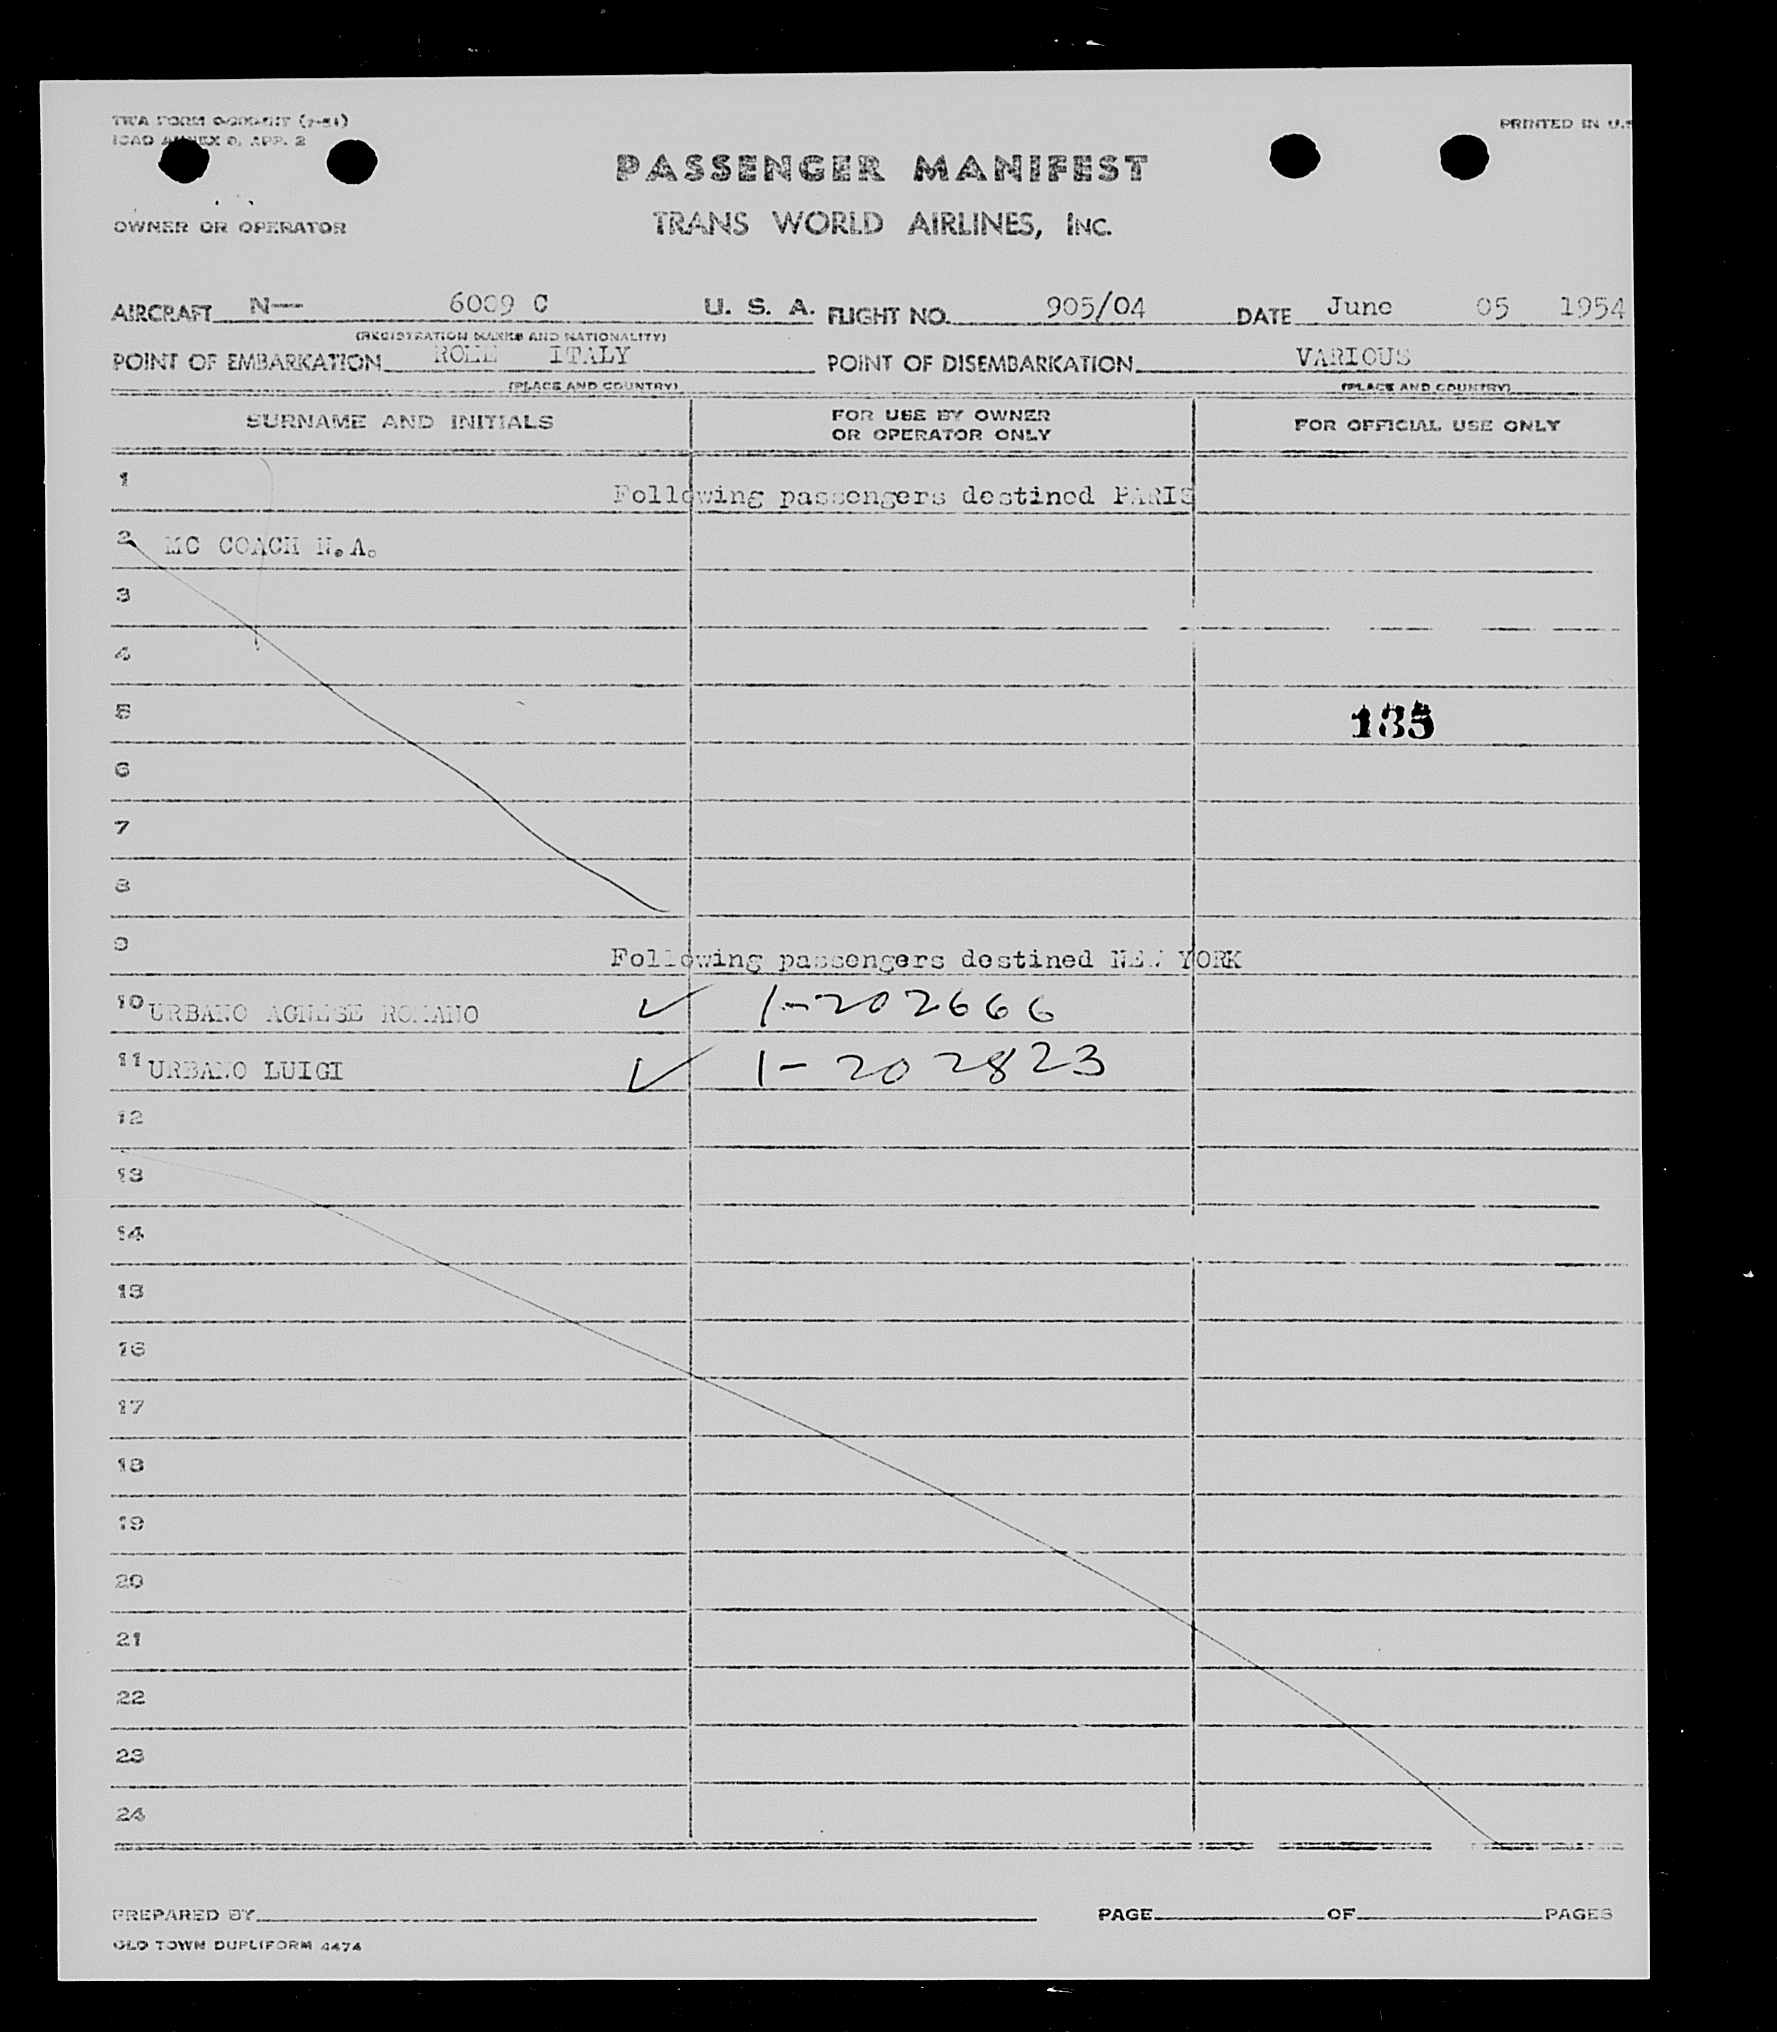 TWA FORM (7-51) PRINTED IN U.S
ICAO ANNEX 9, APP. 2
PASSENGER MANIFEST
TRANS WORLD AIRLINES, INC.
OWNER OR OPERATOR
AIRCRAFT N— 6009 C U. S. A. FLIGHT NO. 905/04 DATE June 05 1954
(REGISTRATION MARKS AND NATIONALITY)
POINT OF EMBARKATION ROME ITALY POINT OF DISEMBARKATION VARIOUS
(PLACE AND COUNTRY) (PLACE AND COUNTRY)
SURNAME AND INITIALS FOR USE BY OWNER OR OPERATOR ONLY FOR OFFICIAL USE ONLY
1 Following passengers destined PARIS
2 MC COACH N.A.
3
4
5 135
6
7
8
9 Following passengers destined NEW YORK
10 URBANO AGNESE ROMANO ✓ 1-202666
11 URBANO LUIGI ✓ 1-202823
12
13
14
15
16
17
18
19
20
21
22
23
24
PREPARED BY PAGE OF PAGES
OLD TOWN DUPLIFORM 4474